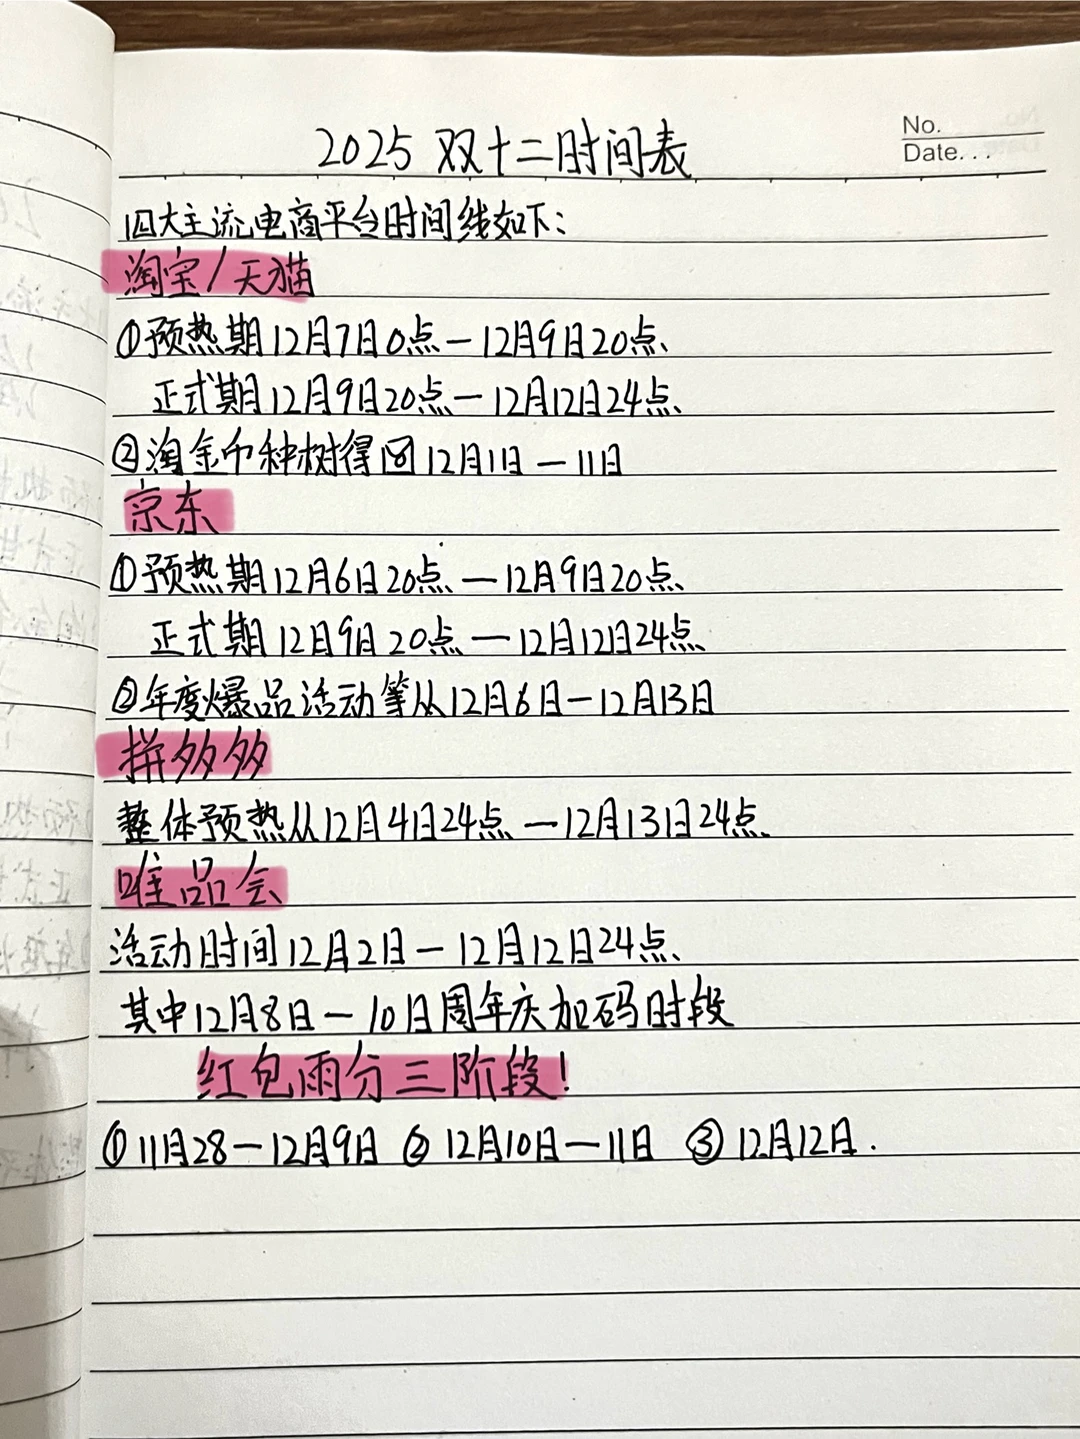 2025 双十二时间表
No.
Date...
四大主流电商平台时间线如下:
淘宝/天猫
①预热期12月7日0点—12月9日20点、
正式期12月9日20点—12月12日24点、
②淘金币种树得 12月1日—11日
京东
①预热期12月6日20点—12月9日20点、
正式期12日9日20点—12月12日24点
②年度爆品活动等从12月6日—12月13日
拼多多
整体预热从12月4日24点—12月13日24点、
唯品会
活动时间12月2日—12月12日24点、
其中12月8日—10日周年庆加码时段
红包雨分三阶段!
①11月28—12月9日 ②12月10日—11日 ③12月12日.